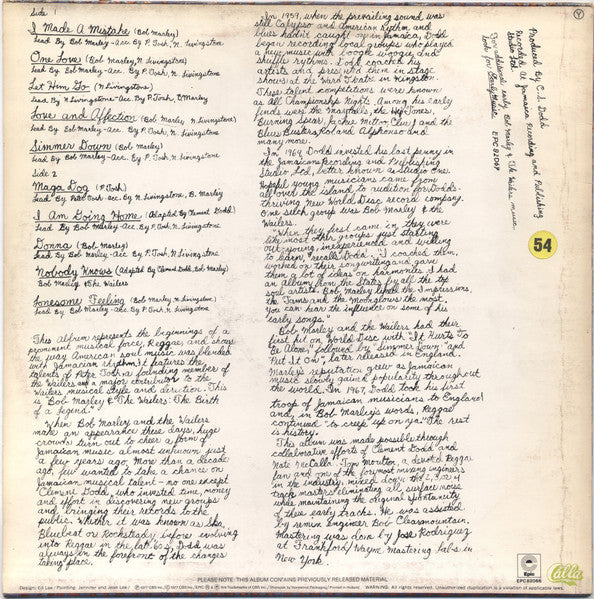 Side 1
I Made A Mistake (Bob Marley)
Lead By Bob Marley-Acc. By P. Tosh, N. Livingstone
One Love (Bob Marley, N. Livingstone)
Lead By Bob Marley-Acc. By P. Tosh, N. Livingstone
Let Him Go (N. Livingstone)
Lead By N. Livingstone-Acc. By P. Tosh, B. Marley
Love and Affection (Bob Marley N. Livingstone)
Lead By Bob Marley-Acc. By P. Tosh, N. Livingstone
Simmer Down (Bob Marley)
Lead By Bob Marley-Acc. By P. Tosh, N. Livingstone
Side 2
Maga Dog (P. Tosh)
Lead By Peter Tosh-Acc. By N. Livingstone, B. Marley
I Am Going Home (Adapted By Clement Dodd)
Lead By Bob Marley-Acc. By P. Tosh N. Livingstone
Donna (Bob Marley)
Lead By Bob Marley-Acc. By P. Tosh, N. Livingstone
Nobody Knows (Adapted By Clement Dodd, Bob Marley)
Bob Marley & The Wailers
Lonesome Feeling (Bob Marley, N. Livingstone)
Lead By Bob Marley-Acc. By P. Tosh N. Livingstone
This Album represents the beginnings of a
prominent musical force, Reggae, and shows
the way American soul music was blended
with Jamaican rhythms. It features the
talents of Peter Tosh, a founding member of
the Wailers and a major contributor to the
Wailers musical style and direction. This
is "Bob Marley & The Wailers: The Birth
of a Legend."
When Bob Marley and the Wailers
make an appearance these days, huge
crowds turn out to cheer a form of
Jamaican music almost unknown just
a few years ago. More than a decade
ago, few wanted to take a chance on
Jamaican musical talent - no one except
Clement Dodd, who invested time, money
and effort in discovering new groups
and bringing their records to the
public. Whether it was known as Ska,
Bluebeat or Rocksteady, before evolving
into Reggae in the late 60's, Dodd was
always in the forefront of the changes
taking place.
In 1959, when the prevailing sound was
still Calypso and American rhythm, and
blues hadn't caught on in Jamaica, Dodd
began recording local groups who played
a new music with boogie woogie, and
shuffle rhythms. Dodd coached his
artists and presented them in stage
shows at the Ward Theatre in Kingston.
These talent competitions were known
as All Championship Nights. Among his early
finds were the Maytals, the Heptones,
Burning Spear, Jackie Mitto, Clue J and the
Blues Busters, Roland Alphonso and
many more.
In 1964, Dodd invested his last penny in
the Jamaican Recording and Publishing
Studio Ltd., better known as Studio One.
Hopeful young musicians came from
all over the island to audition for Dodd's
thriving new World Disc record company.
One such group was Bob Marley & the
Wailers.
"When they first came in they were
like most other groups just starting
out; young, inexperienced and willing
to learn," recalls Dodd. "I coached them,
worked on their songwriting and gave
them a lot of ideas on harmonies. I had
an Album from the States by all the top
soul artists. Bob Marley liked the Impressions,
the Tams and the Moonglows the most.
You can hear the influence on some of his
early songs."
Bob Marley and the Wailers had their
first hit on World Disc with "It Hurts To
Be Alone," followed by "Simmer Down" and
"Put It On," later released in England.
Marley's reputation grew as Jamaican
music slowly gained popularity throughout
the world. In 1967, Dodd took his first
troop of Jamaican musicians to England
and, in Bob Marley's words, Reggae
continued "to creep up on ya." The rest
is history.
This album was made possible through
collaborative efforts of Clement Dodd and
Nate McCalla. Tom Moulton, a devoted Reggae
fan and one of the foremost mixing engineers
in the industry, mixed down the 2, 3, or 4
track masters eliminating all surface noise
while maintaining the original spontaneity
of these early tracks. He was assisted
by remix engineer Bob Clearmountain.
Mastering was done by Jose Rodriguez
at Frankford/Wayne Mastering Labs in
New York.
Produced by C.S. Dodd
Recorded at Jamaica Recording and Publishing
Studio Ltd.
For additional early Bob Marley & The Wailers music,
look for Early Music
EPC 82067
Y
54
PLEASE NOTE: THIS ALBUM CONTAINS PREVIOUSLY RELEASED MATERIAL
Epic
EPC 82066
Calla